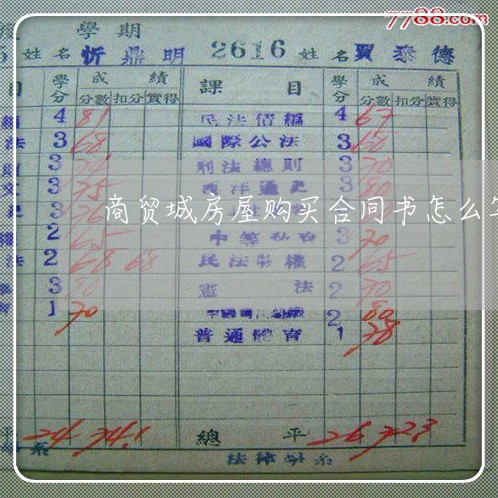 7788.com
學期
姓名 忻鼎明 2616 姓名 賈泰德
目 學分 成績 課目 學分 成績
分數 扣分 實得 分數 扣分 實得
4 81 民法債編 4 67
法 3 68 國際公法 3 60
3 刑法總則 3 70
文 3 75 西洋通史 3 80
3 76
商贸城房屋购买合同书怎么写
2 65 3 70
法 2 68 68 民法物權 2 65
3 80 憲法 2 70
1 70 2 80
普通體育 1 78
平 24 74.1 總平 26 72.3
系 法律學系